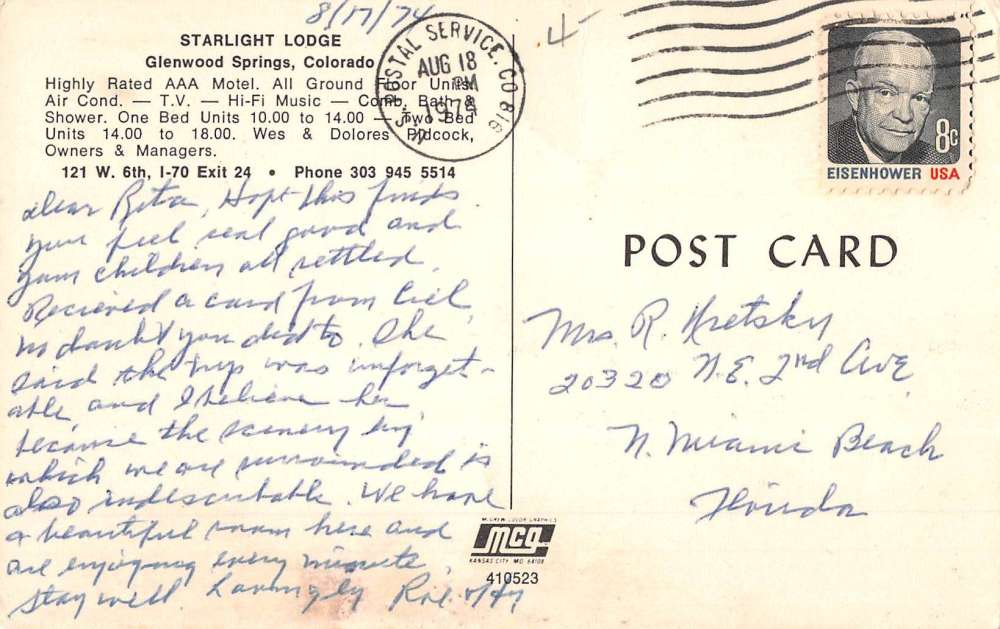 8/17/74
STARLIGHT LODGE
Glenwood Springs, Colorado
Highly Rated AAA Motel. All Ground Floor Units.
Air Cond. — T.V. — Hi-Fi Music — Comb. Bath &
Shower. One Bed Units 10.00 to 14.00 — Two Bed
Units 14.00 to 18.00. Wes & Dolores Pidcock,
Owners & Managers.
121 W. 6th, I-70 Exit 24 • Phone 303 945 5514
Dear Rita, Hope this finds
you feel real good and
your children all settled.
Recieved a card from Ciel,
no doubt you did to. She
said the trip was unforget-
able, and I believe her,
because the scenery by
which we are surrounded is
also indescribable. We have
a beautiful room here and
are enjoying every minute.
Stay well. Lovingly
U.S. POSTAL SERVICE, CO 816
AUG 18
PM
1974
8c
EISENHOWER USA
POST CARD
Mrs. R. Kretsky
20320 N.E. 2nd Ave,
N. Miami Beach
Florida
McGREW COLOR GRAPHICS
mcg
KANSAS CITY, MO. 64108
410523